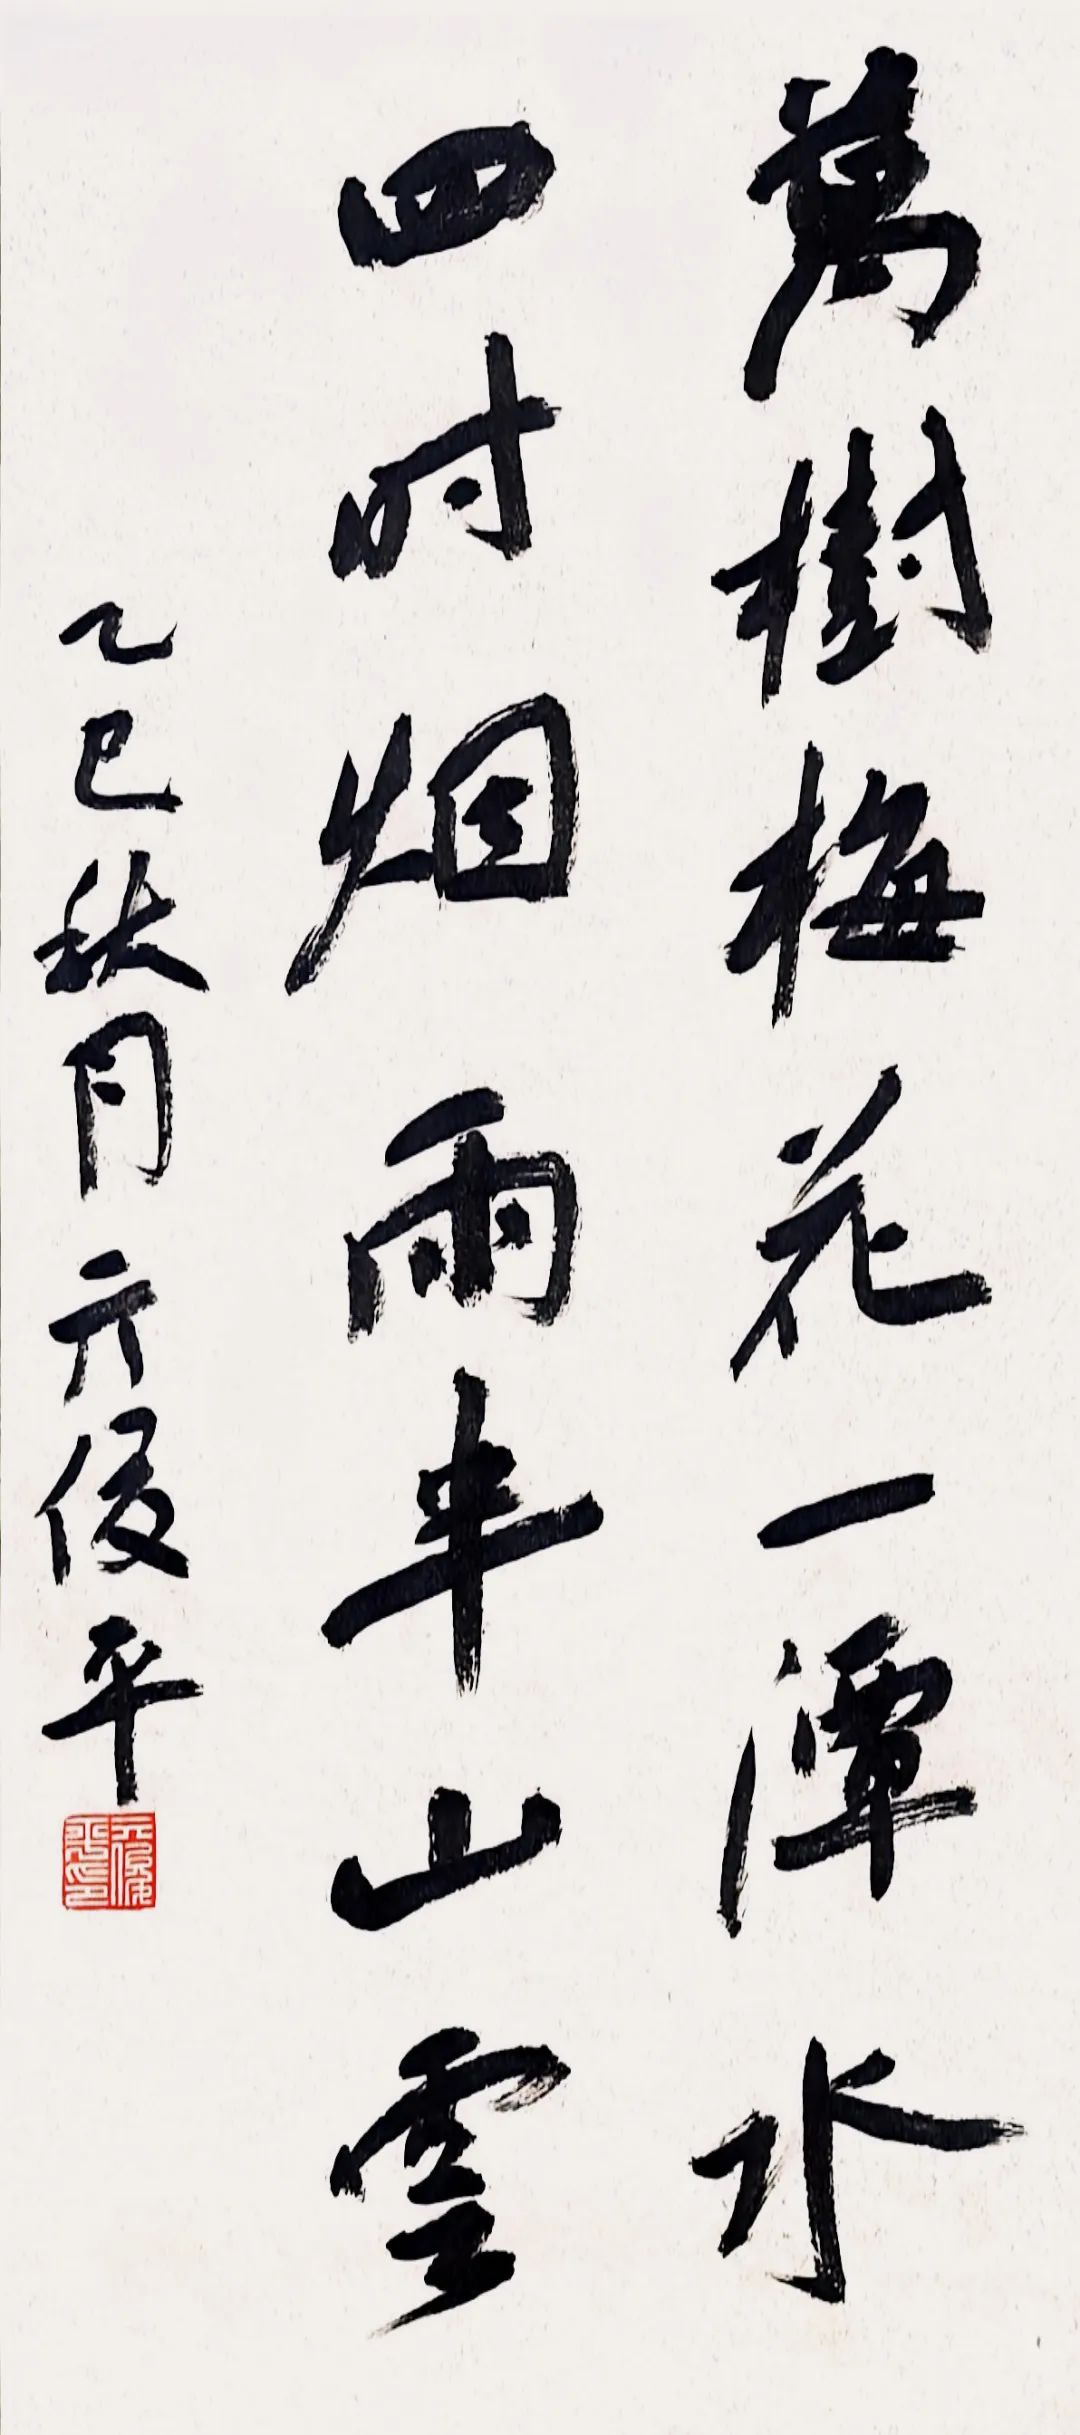 萬樹梅花一潭水
四时烟雨半山雲
乙巳秋月亓俊平
亓俊平印